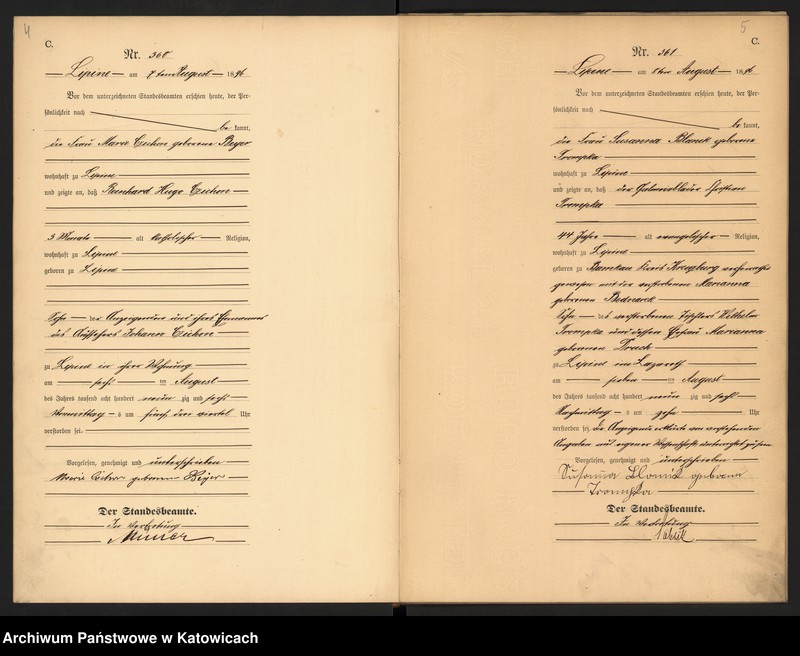 4
C.
Nr. 360
Lipine am 7ten August 1896
Vor dem unterzeichneten Standesbeamten erschien heute, der Per-
sönlichkeit nach
be kannt,
die Frau Marie Cichon geborene Beyer
wohnhaft zu Lipine
und zeigte an, daß Reinhard Hugo Cichon
3 Monate alt katholischer Religion,
wohnhaft zu Lipine
geboren zu Lipine
Sohn der Anzeigenden und ihres Ehemannes
des Aufsehers Johann Cichon
zu Lipine in ihrer Wohnung
am sechs ten August
des Jahres tausend acht hundert neun zig und sechs
Vormittag s um fünf drei viertel Uhr
verstorben sei.
Vorgelesen, genehmigt und unterschrieben
Marie Cichon geborene Beyer
Der Standesbeamte.
In Vertretung
5
C.
Nr. 361
Lipine am 8ten August 1896
Vor dem unterzeichneten Standesbeamten erschien heute, der Per-
sönlichkeit nach
be kannt,
die Frau Susanna geborene
Trompka
wohnhaft zu Lipine
und zeigte an, daß der Christian
Trompka
44 Jahre alt evangelischer Religion,
wohnhaft zu Lipine
geboren zu Bankau Kreis Kreuzburg verheirathet
gewesen mit der verstorbenen Marianna
geborenen Bednarek
Sohn des verstorbenen Wilhelm
Trompka und dessen Ehefrau Marianna
geborenen
zu Lipine im Lazareth
am sieben ten August
des Jahres tausend acht hundert neun zig und sechs
Nachmittag s um zehn Uhr
verstorben sei. Die Anzeigende erklärte von vorstehenden
Angaben aus eigener Wissenschaft unterrichtet zu sein
Vorgelesen, genehmigt und unterschrieben
Susanna geborene
Trompka
Der Standesbeamte.
In Vertretung
Archiwum Państwowe w Katowicach